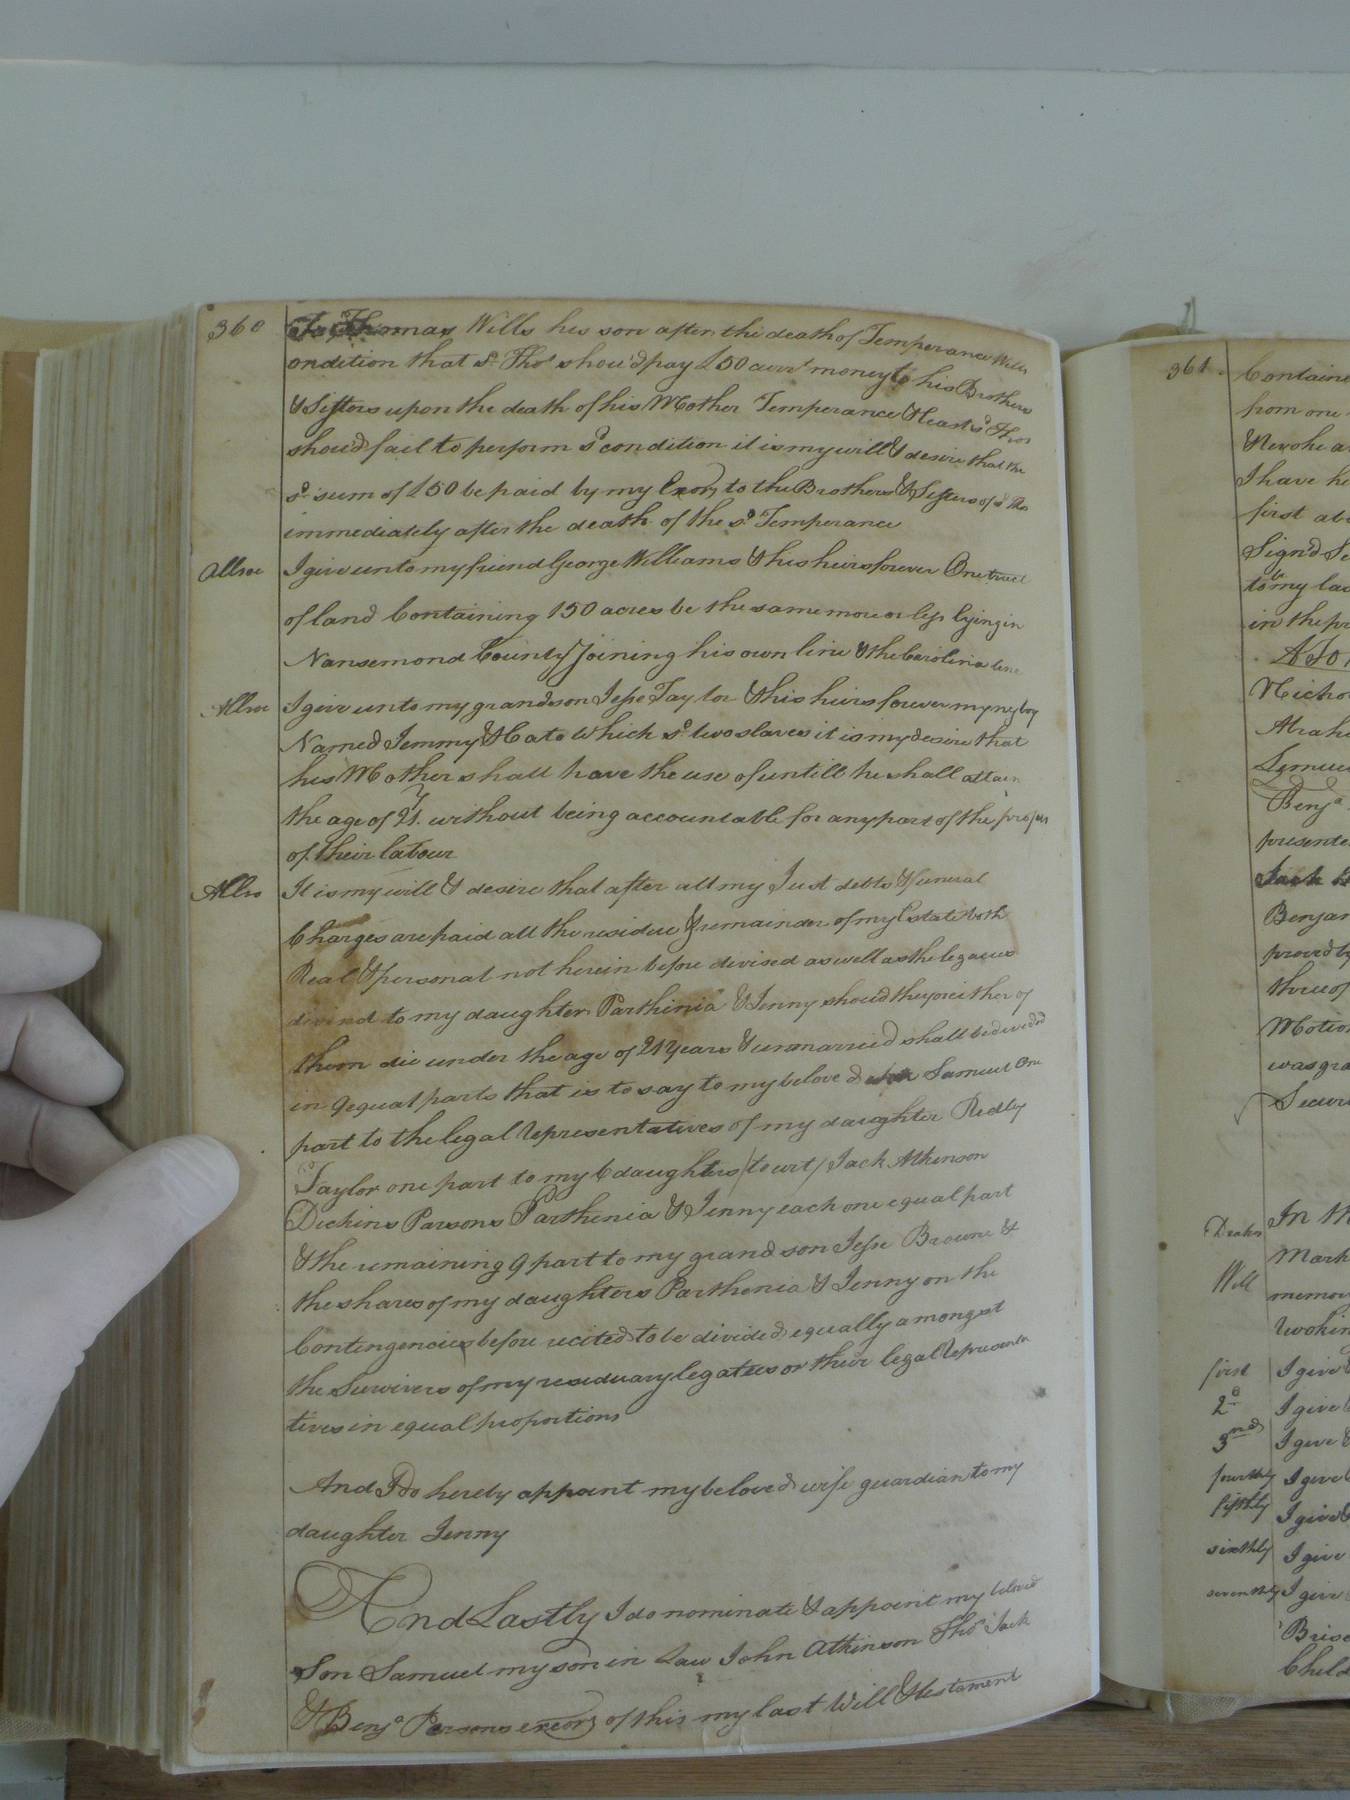 360
To Thomas Wills his son after the death of Temperance Wills
ondition that sd. Thos shou'd pay £50 curr.t money to his Brothers
& Sisters upon the death of his Mother Temperance & leart sd. Thos
shou'd fail to perform sd condition it is my will & desire that the
sd. sum of £50 be paid by my Exors to the Brothers & Sisters of sd Tho
immediately after the death of the sd. Temperance
Allsoe I give unto my friend George Williams & his heirs forever One tract
of land Containing 150 acres be the same more or less lying in
Nansemond County Joining his own line & the Carolina line
Allsoe I give unto my grandson Jesse Taylor & his heirs forever my negboy
Named Jemmy & Cate which sd. two slaves it is my desire that
his Mother shall have the use of untill he shall attain
the age of 21. without being accountable for any part of the profits
of their labour
Allso It is my will & desire that after all my Just debts & funeral
Charges are paid all the residue & remainder of my Estate both
Real & personal not herein before devised as well as the legacies
divised to my daughters Parthinia & Jenny shou'd they or either of
them die under the age of 21 years & unmarried shall be divided
in 9 equal parts that is to say to my beloved son Samuel One
part to the legal Representatives of my daughter Redly
Taylor one part to my 6 daughters (to wit) Jack Atkinson
Dickins Parsons Parthenia & Jenny each one equal part
& the remaining 9 part to my grand son Jesse Browne &
the shares of my daughters Parthenia & Jenny on the
Contingencies before recited to be divided equally amongst
the Survivers of my residuary legatees or their legal Representa
tives in equal proportions
And I do hereby appoint my beloved wife guardian to my
daughter Jenny
And Lastly I do nominate & appoint my beloved
Son Samuel my son in Law John Atkinson Thos. Jack
& Benja. Parsons exors of this my last Will & testament
361.
Containe
from one
& Revoke a
I have he
first ab
Sign'd Se
to be my las
in the pr
Nicho
Abrah
Lemuel
Benja
presente
Jack
Benjam
proved by
three of
Motion
was gra
Secur
Drakes In th
Mark
Will memor
Wokin
first I give
2d I give
3rd I give &
fourthly I give
fifthly I give &
sixthly I give
seventhly I give
Brisc
Child